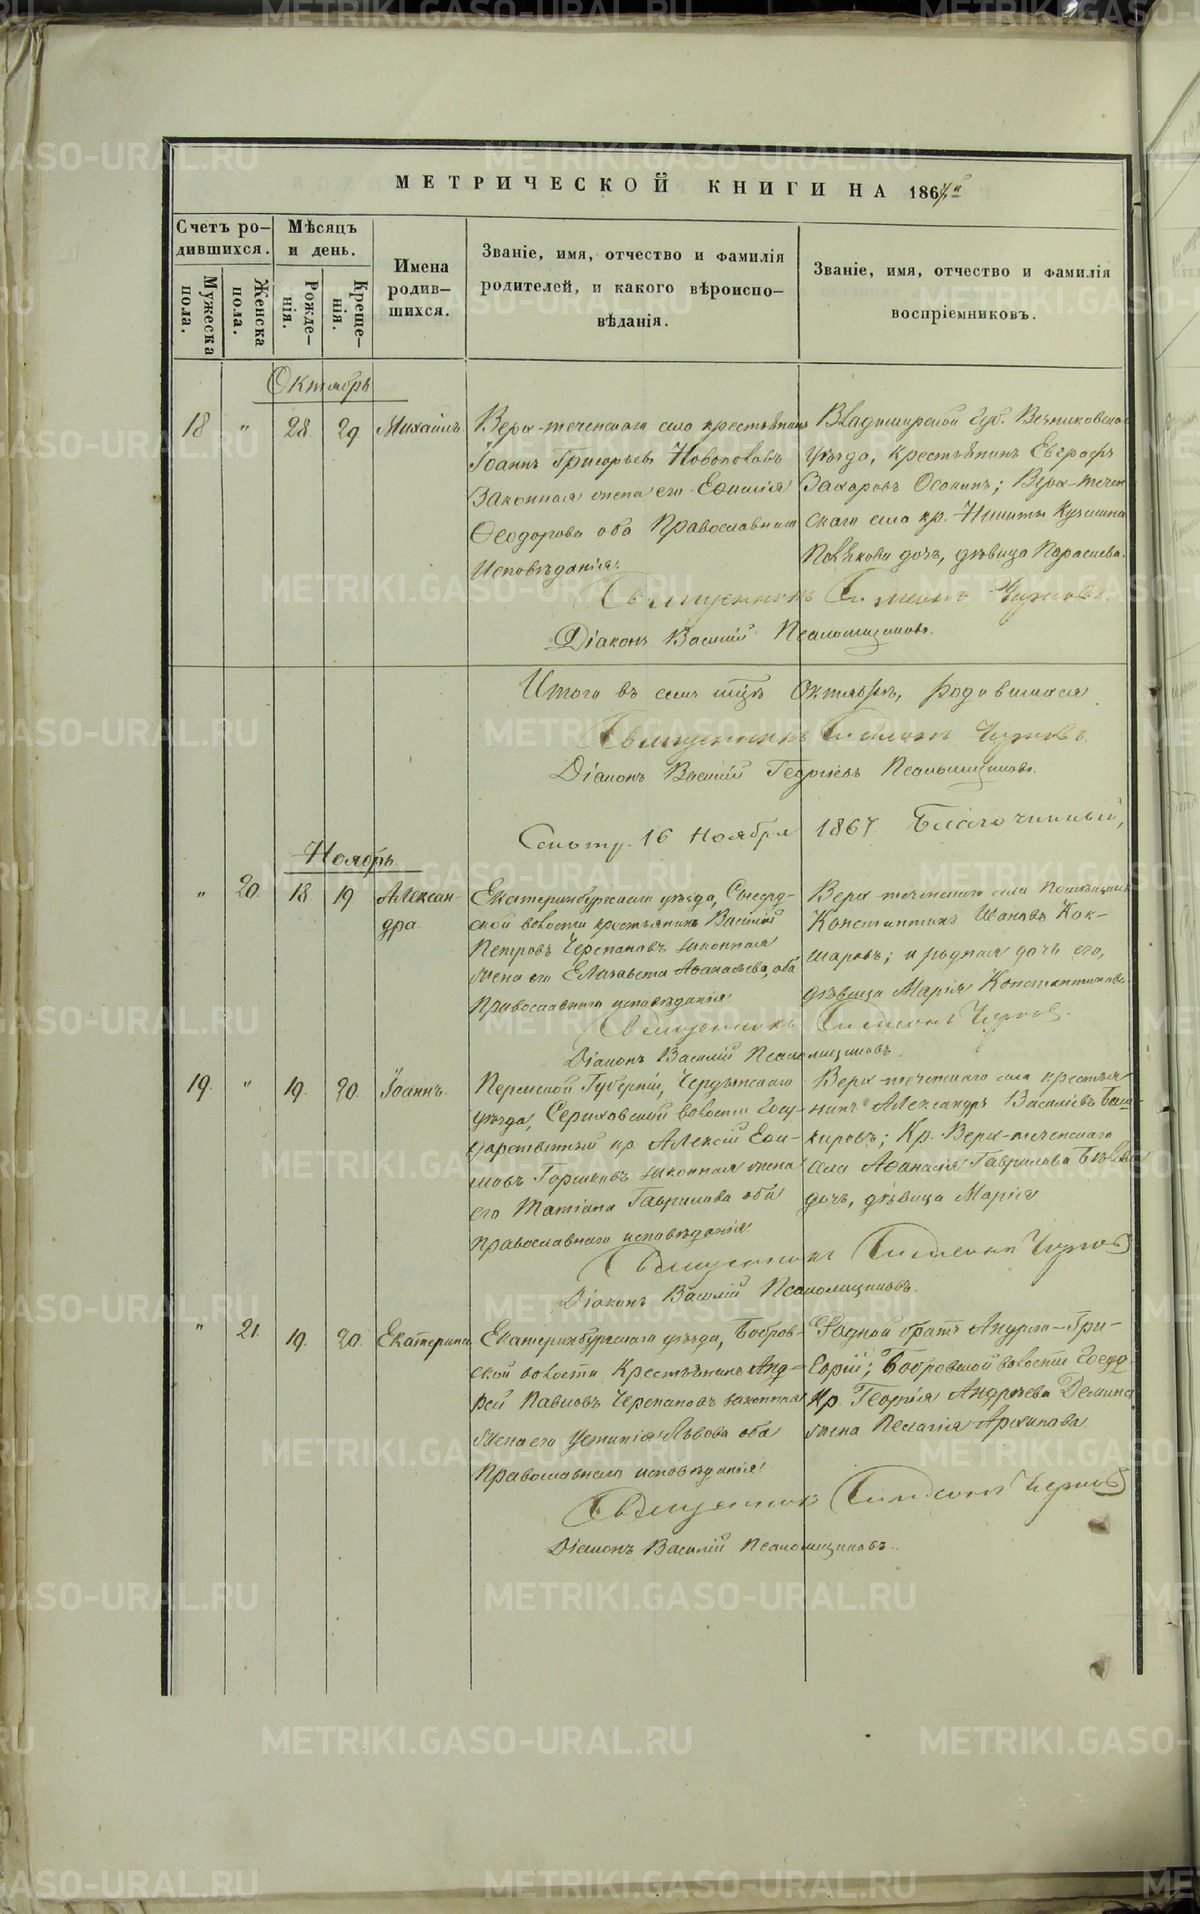 МЕТРИЧЕСКОЙ КНИГИ НА 1867й
Счетъ ро-
дившихся.
Мѣсяцъ
и день.
Имена
родив-
шихся.
Званіе, имя, отчество и фамилія
родителей, и какого вѣроиспо-
вѣданія.
Званіе, имя, отчество и фамилія
воспріемниковъ.
Мужеска
пола.
Женска
пола.
Рожде-
нія.
Креще-
нія.
Октябрь
18 " 28 29 Михаилъ
Верх-теченскаго села крестьянинъ
Іоаннъ Григорьевъ Новополовъ
Законная жена его Ефимія
Ѳеодорова оба Православнаго
Исповѣданія.
Владимирской Губ. Вязниковскаго
уѣзда, крестьянинъ Евграфъ
Захаровъ Осокинъ; Верх-течен
скаго села кр. Никиты Кузмина
дочь, дѣвица
Священникъ Симеонъ
Діаконъ Василій Псаломщиковъ.
Итого въ семъ мцѣ Октябрѣ, родившихся
Священникъ Симеонъ
Діаконъ Василій Георгіевъ Псаломщиковъ.
16 Ноября 1867. Благочинный,
Ноябрь
" 20 18 19 Алексан-
дра
Екатеринбургскаго уѣзда, Сысерд-
ской волости крестьянинъ Василій
Петровъ Черепановъ законная
жена его Елизавета Аѳанасьева, оба
Православнаго исповѣданія
Верх-теченскаго села
Константинъ Кок-
шаровъ; и родная дочь его,
дѣвица Марія Константинова
Священникъ Симеонъ
Діаконъ Василій Псаломщиковъ.
19. " 19. 20. Іоаннъ
Пермской Губерніи, Чердынскаго
уѣзда, волости Госу-
дарственный кр. Алексій Ефи-
мовъ Горшковъ законная жена
его Татіана Гаврилова оба
Православнаго исповѣданія
Верх-теченскаго села крестья-
нинъ Александръ Василіевъ Баш-
кировъ; Кр. Верх-теченскаго
села Аѳанасія Гаврилова
дочь, дѣвица Марія
Священникъ Симеонъ
Діаконъ Василій Псаломщиковъ.
" 21. 19. 20. Екатерина
Екатеринбургскаго уѣзда, Бобров-
ской волости Крестьянинъ Анд-
рей Павловъ Черепановъ законная
жена его Устинія Львова оба
Православнаго исповѣданія
Родной братъ Андрея Гри-
горій; Бобровской волости Госуд.
Кр. Георгія Андреева Демина
жена Пелагія Архипова
Священникъ Симеонъ
Діаконъ Василій Псаломщиковъ.
METRIKI.GASO-URAL.RU